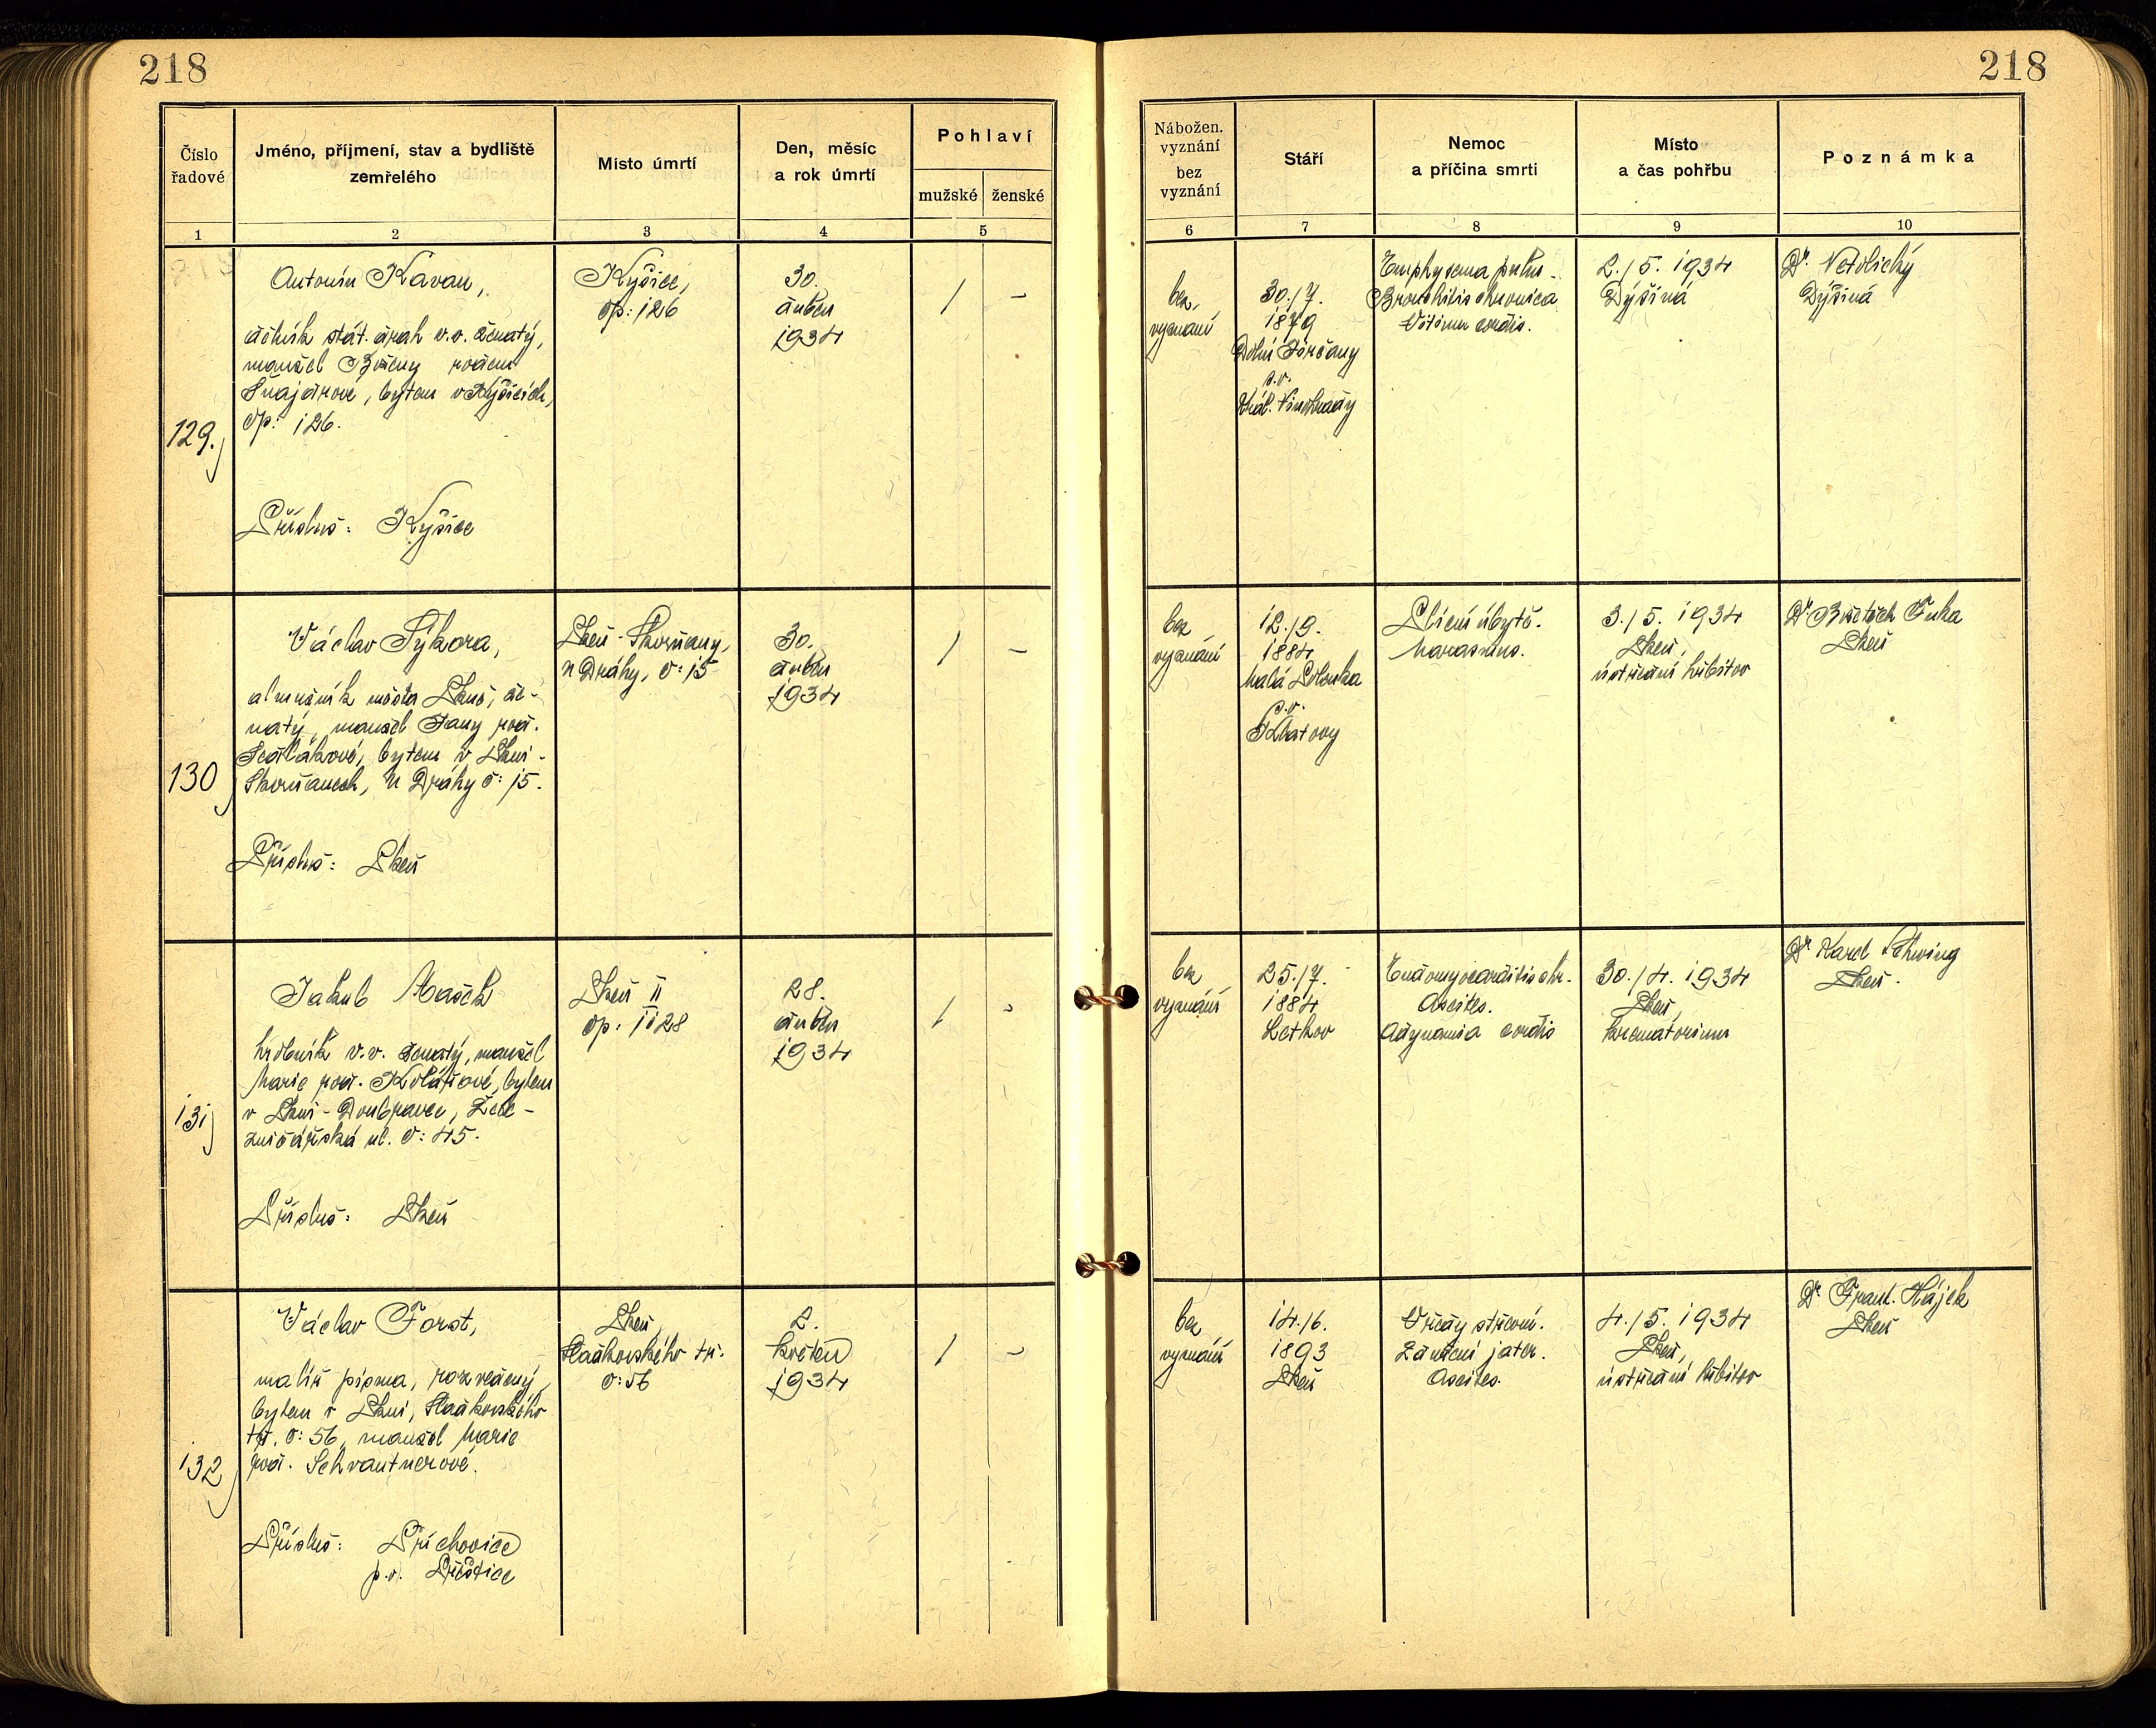 218
218
Číslo řadové
Jméno, příjmení, stav a bydliště zemřelého
Místo úmrtí
Den, měsíc a rok úmrtí
Pohlaví
mužské
ženské
1
2
3
4
5
Nábožen. vyznání
bez vyznání
Stáří
Nemoc a příčina smrti
Místo a čas pohřbu
Poznámka
6
7
8
9
10
129.
Antonín Kavan,
stát. drah v.v. ženatý,
manžel Boženy rozen
Šnajdrové, bytem v Kyšicích,
čp: 126.
Přísluš: Kyšice
Kyšice,
čp: 126
30.
duben
1934
/
-
bez
vyznání
30./7.
1879
Dolní
s.o.
Král. Vinohrady
Emphysema pulm-
Bronchitis chronica
Vitium cordis.
2./5. 1934
Dýšina
Dr. Netolický
Dýšina
130
Václav Sýkora,
almužník města Plzně, že-
natý, manžel Jany roz.
Sedlákové, bytem v Plzni-
Skvrňanech, U Dráhy č: 15.
Přísluš: Plzeň
Plzeň-Skvrňany,
U Dráhy, č: 15
30.
duben
1934
/
-
bez
vyznání
12./9.
1884
Malá
s.o.
Klatovy
Plicní úbytě.
Marasmus.
3./5. 1934
Plzeň,
ústřední hřbitov
Dr. Břetisl. Fuka
Plzeň
131
Jakub Mašek
hrobník v.v. ženatý, manžel
Marie roz. Kolářové, bytem
v Plzni-Doubravce, Žele-
zničářská ul. č: 45.
Přísluš: Plzeň
Plzeň II
čp: 1128
28.
duben
1934
/
-
bez
vyznání
25./7.
1884
Letkov
Endomyocarditis chr.
Ascites.
Adynamia cordis
30./4. 1934
Plzeň,
krematorium
Dr. Karel Schwing
Plzeň.
132
Václav Forst,
malíř písma, rozvedený,
bytem v Plzni, Sladkovského
tř. č: 56, manžel Marie
roz. Schrantnerové.
Přísluš: Příchovice
p.o. Přeštice
Plzeň,
Sladkovského tř.
č: 56
2.
květen
1934
/
-
bez
vyznání
14./6.
1893
Plzeň
Vředy střevní.
Zánícení jater.
Ascites.
4./5. 1934
Plzeň,
ústřední hřbitov
Dr. Frant. Hájek
Plzeň